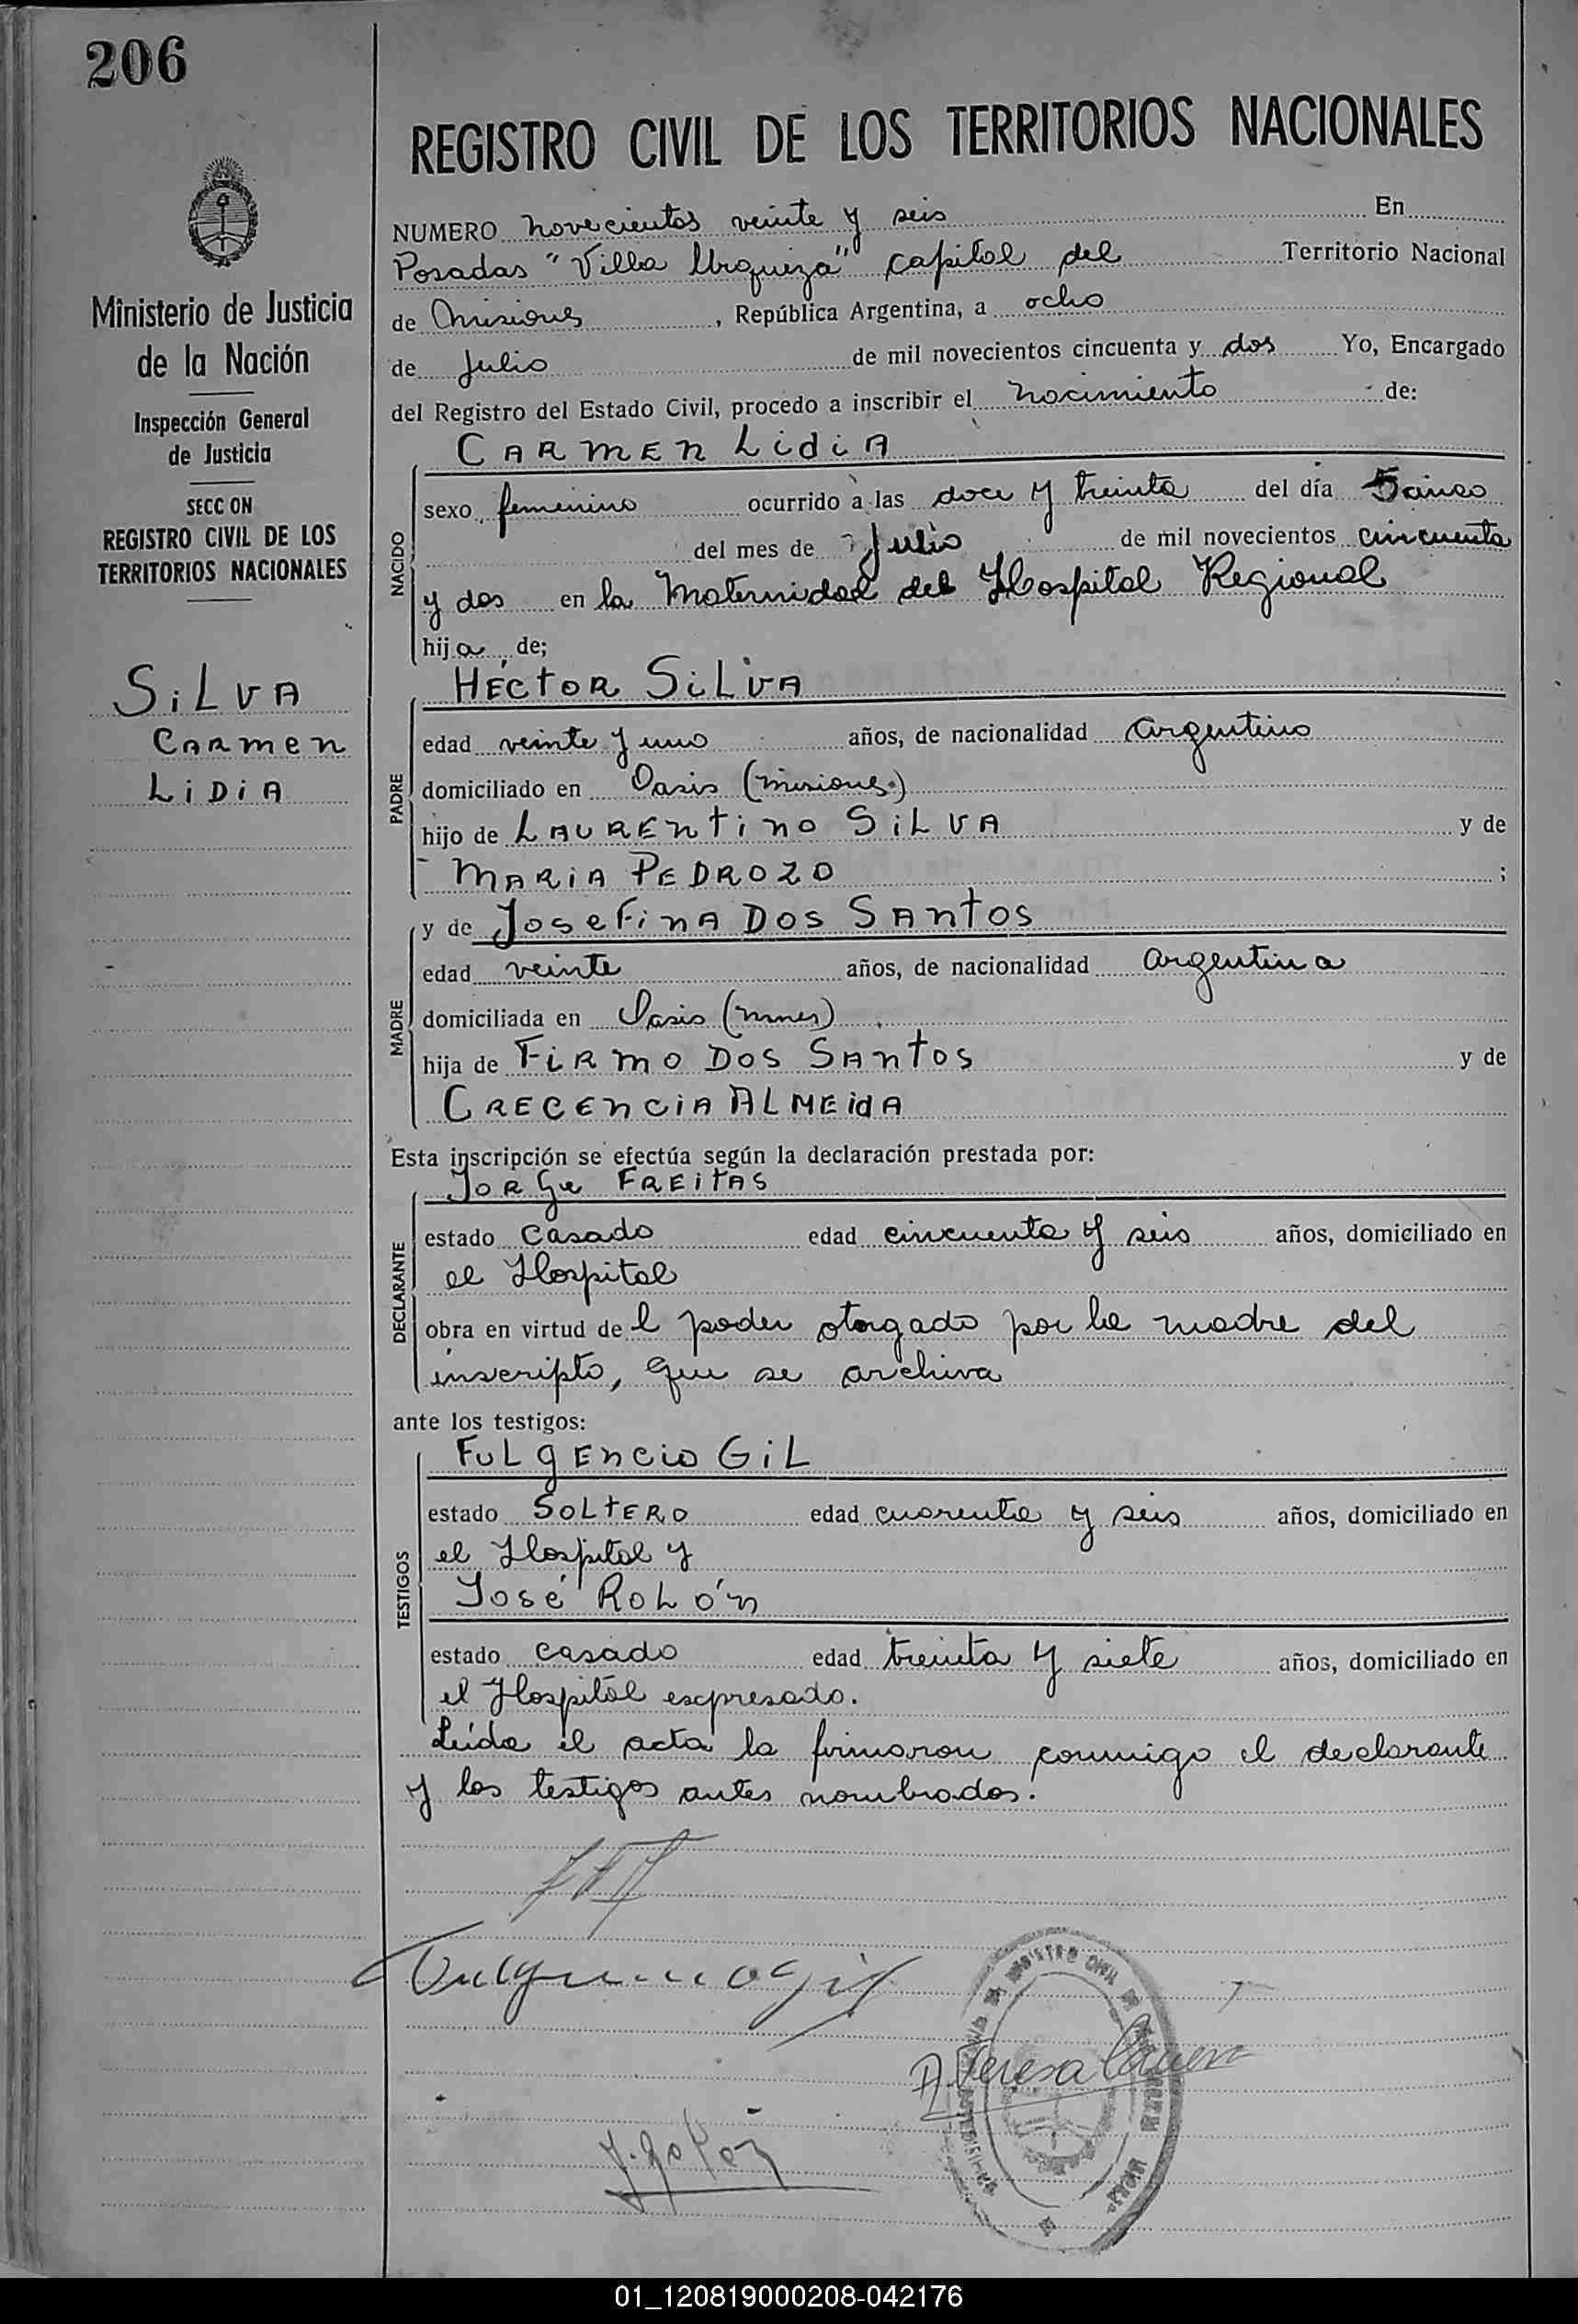 206
REGISTRO CIVIL DE LOS TERRITORIOS NACIONALES
Ministerio de Justicia
de la Nación
Inspección General
de Justicia
SECC ON
REGISTRO CIVIL DE LOS
TERRITORIOS NACIONALES
SiLVA
CARmEn
LiDiA
NUMERO novecientos veinte y seis En
Posadas "Villa Urquiza" capital del Territorio Nacional
de Misiones, República Argentina, a ocho
de Julio de mil novecientos cincuenta y dos Yo, Encargado
del Registro del Estado Civil, procedo a inscribir el nacimiento de:
CARmEn LidiA
NACIDO
sexo femenino ocurrido a las doce y treinta del día cinco
del mes de Julio de mil novecientos cincuenta
y dos en la Maternidad del Hospital Regional
hija de;
HÉCtOR SiLVA
PADRE
edad veinte y uno años, de nacionalidad argentino
domiciliado en Oasis (Misiones)
hijo de LAUREntino SiLVA y de
MARiA PEDROZO ;
y de JoseFinA DOS SAntOS
MADRE
edad veinte años, de nacionalidad argentina
domiciliada en Oasis (mnes)
hija de FiRmO DOS SAntOS y de
CRECEnCiA ALMEidA
Esta inscripción se efectúa según la declaración prestada por:
JORge FREitAS
DECLARANTE
estado casado edad cincuenta y seis años, domiciliado en
el Hospital
obra en virtud del poder otorgado por la madre del
inscripto, que se archiva
ante los testigos:
FULgEnCio GiL
TESTIGOS
estado SOLtERO edad cuarenta y seis años, domiciliado en
el Hospital y
José ROLÓn
estado casado edad treinta y siete años, domiciliado en
el Hospital expresado.
Leída el acta la firmaron conmigo el declarante
y los testigos antes nombrados.
J. Rolón
01_120819000208-042176